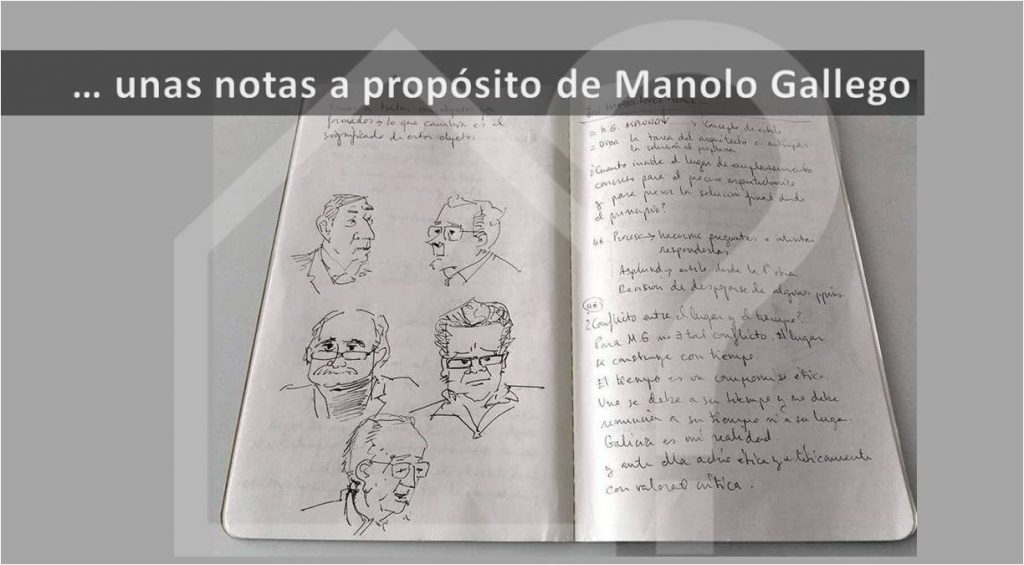 ... unas notas a propósito de Manolo Gallego
formados → lo que cambia es el
significado de estos objetos
M.G. ASPLUND → Concepto de estilo
la tarea del arquitecto es
la solución al problema
¿Cuanto incide el lugar de emplazamiento
concreto para el proceso arquitectónico
y para prever la solución final desde
el principio?
MG Proceso → hacerse preguntas e intentar
responderlas
Asplund → estilo desde la 1ª obra
Revisión de despojarse de algunos ppios
MG
¿Conflicto entre el lugar y el tiempo?
Para M.G no ∃ tal conflicto. El lugar
se construye con tiempo.
El tiempo es un compromiso ético.
Uno se debe a su tiempo y no debe
renunciar a su tiempo ni a su lugar.
Galicia es mi realidad
y ante ella actúo ética y estéticamente
con valoral crítica.